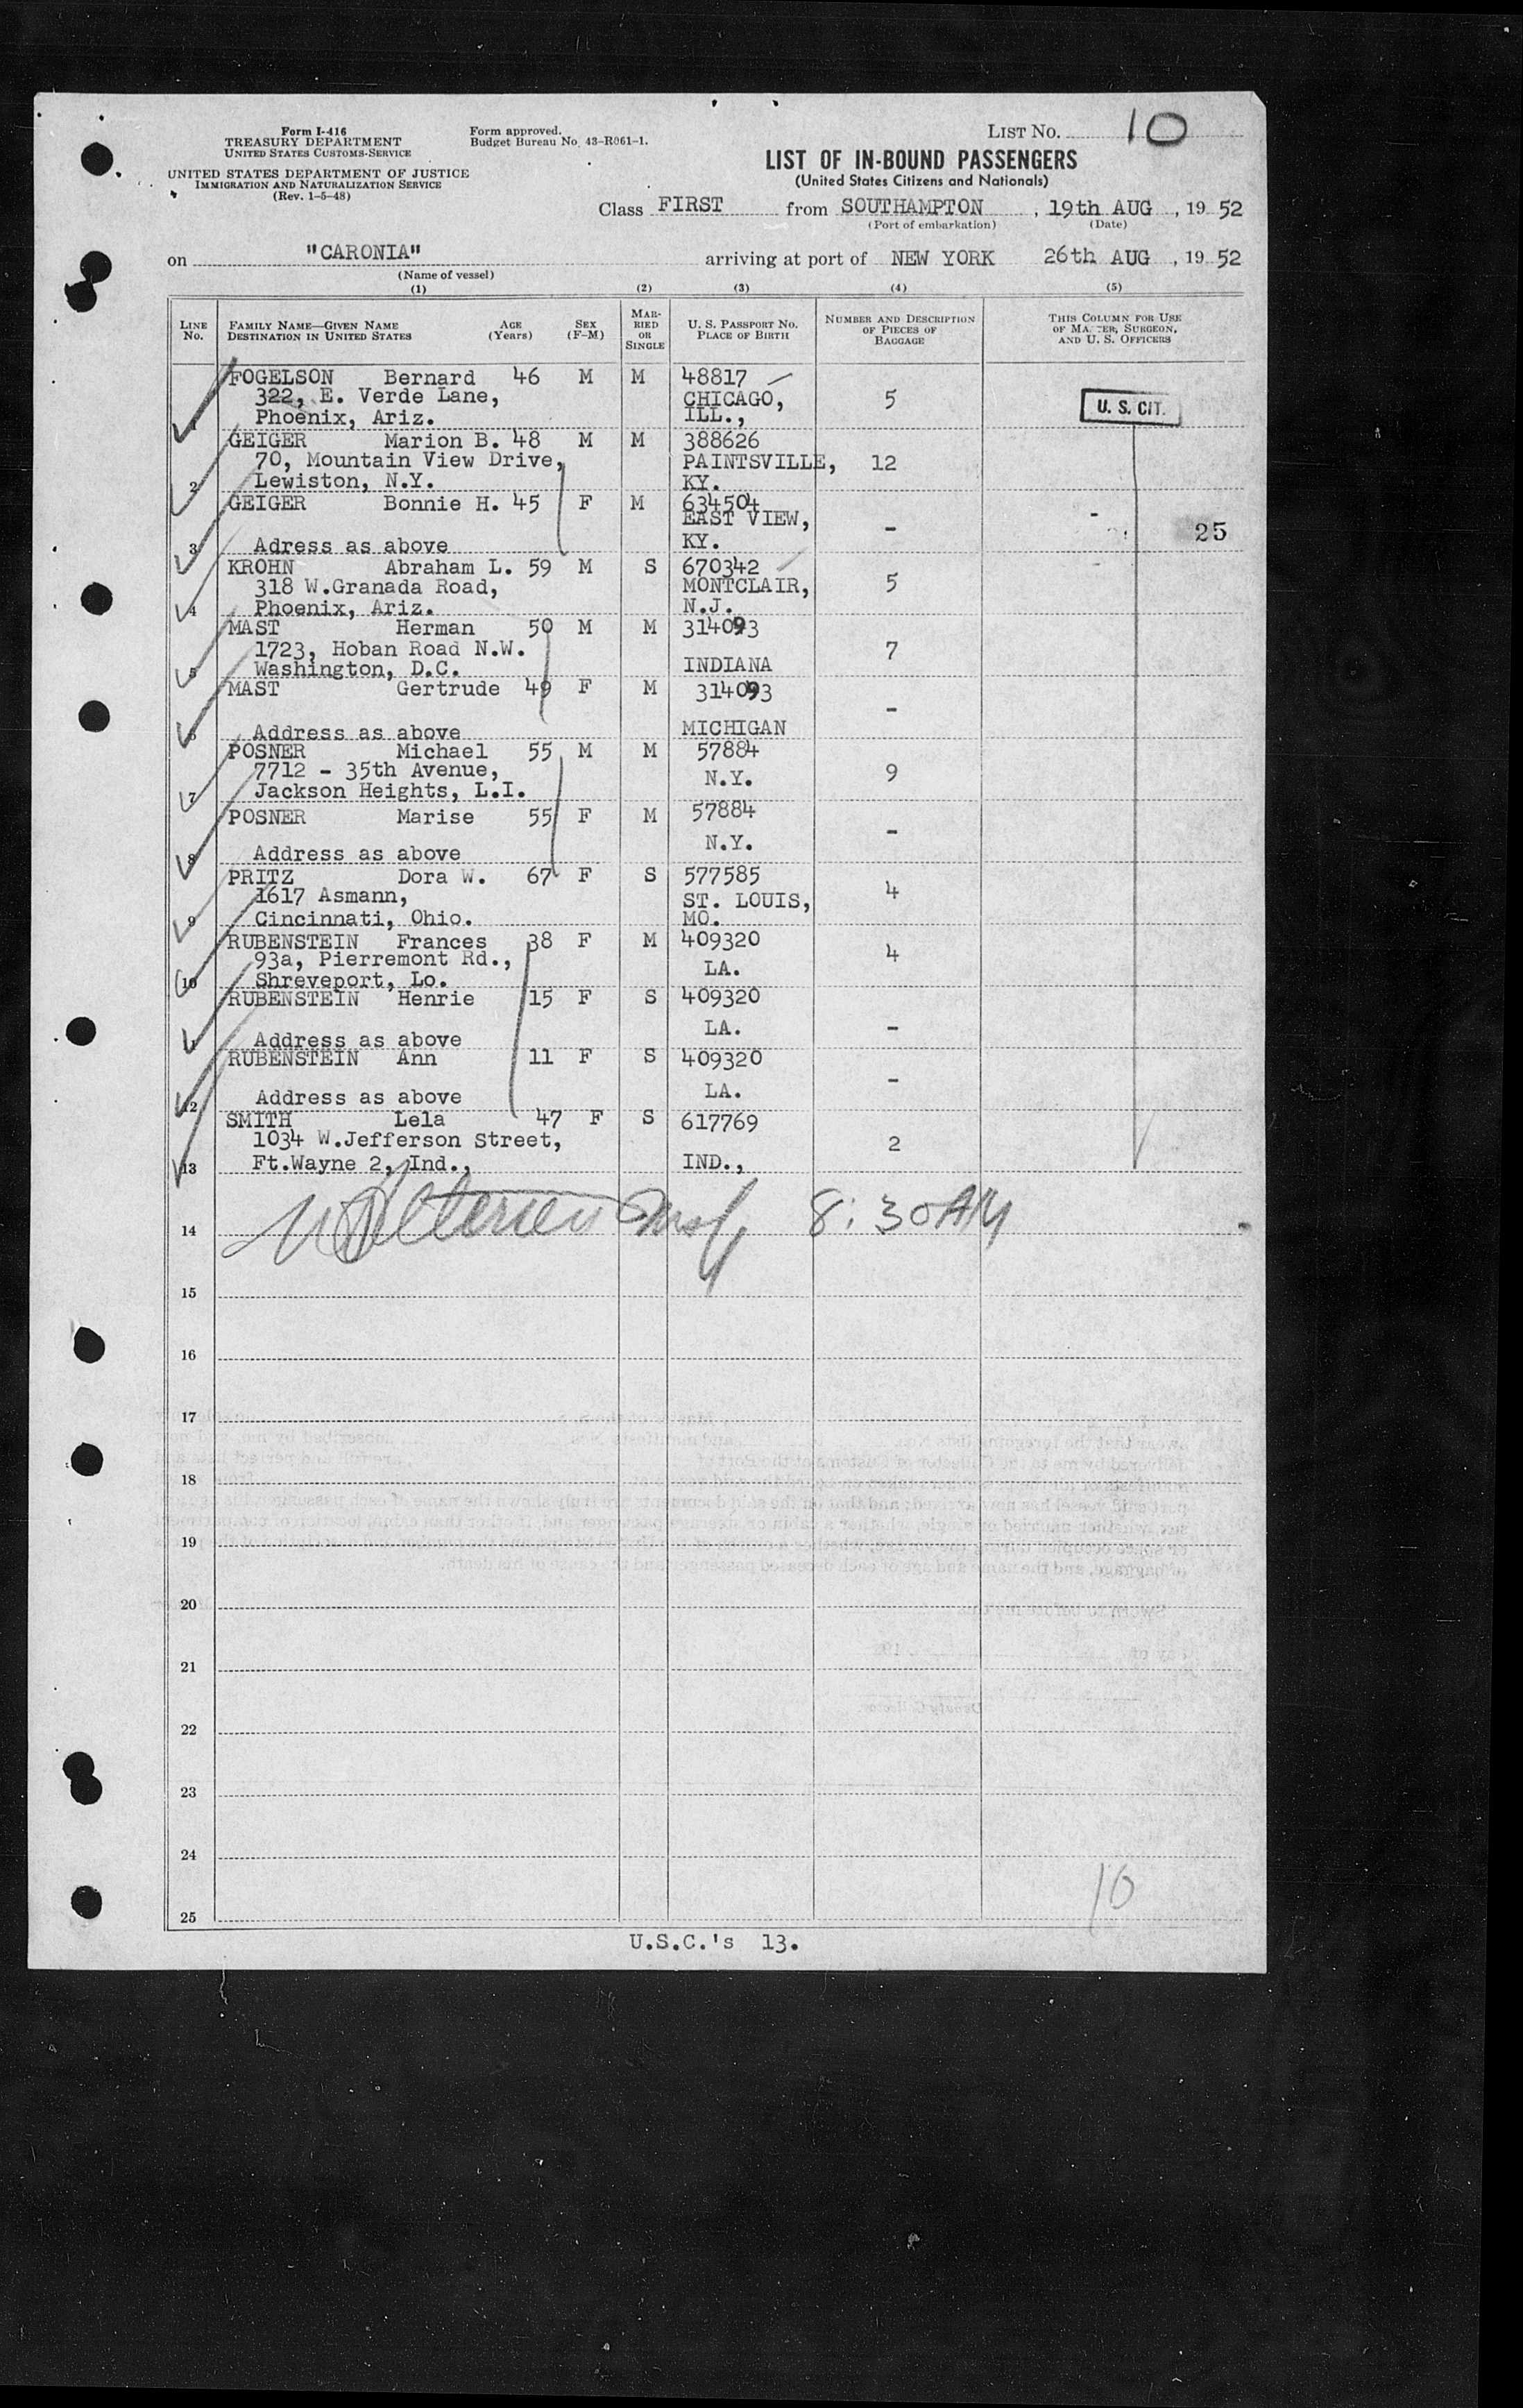 Form I-416
TREASURY DEPARTMENT
UNITED STATES CUSTOMS-SERVICE
UNITED STATES DEPARTMENT OF JUSTICE
IMMIGRATION AND NATURALIZATION SERVICE
(Rev. 1-5-48)
Form approved.
Budget Bureau No. 43-R061-1.
LIST NO. 10
LIST OF IN-BOUND PASSENGERS
(United States Citizens and Nationals)
Class FIRST from SOUTHAMPTON , 19th AUG , 19 52
(Port of embarkation) (Date)
on "CARONIA" arriving at port of NEW YORK 26th AUG , 19 52
(Name of vessel)
(1) (2) (3) (4) (5)
LINE NO. FAMILY NAME—GIVEN NAME DESTINATION IN UNITED STATES AGE (Years) SEX (F-M) MARRIED OR SINGLE U. S. PASSPORT NO. PLACE OF BIRTH NUMBER AND DESCRIPTION OF PIECES OF BAGGAGE THIS COLUMN FOR USE OF MASTER, SURGEON, AND U. S. OFFICERS
FOGELSON Bernard 46 M M 48817
322, E. Verde Lane, CHICAGO, 5 U. S. CIT.
Phoenix, Ariz. ILL.,
GEIGER Marion B. 48 M M 388626
70, Mountain View Drive, PAINTSVILLE, 12
2 Lewiston, N.Y. KY.
GEIGER Bonnie H. 45 F M 634504
EAST VIEW, - 25
3 Adress as above KY.
KROHN Abraham L. 59 M S 670342
318 W.Granada Road, MONTCLAIR, 5
4 Phoenix, Ariz. N.J.
MAST Herman 50 M M 314093
1723, Hoban Road N.W. 7
5 Washington, D.C. INDIANA
MAST Gertrude 49 F M 314093
-
6 Address as above MICHIGAN
POSNER Michael 55 M M 57884
7712 - 35th Avenue, N.Y. 9
7 Jackson Heights, L.I.
POSNER Marise 55 F M 57884
N.Y. -
8 Address as above
PRITZ Dora W. 67 F S 577585
1617 Asmann, ST. LOUIS, 4
9 Cincinnati, Ohio. MO.
RUBENSTEIN Frances 38 F M 409320
93a, Pierremont Rd., LA. 4
10 Shreveport, Lo.
RUBENSTEIN Henrie 15 F S 409320
LA. -
Address as above
RUBENSTEIN Ann 11 F S 409320
LA. -
12 Address as above
SMITH Lela 47 F S 617769
1034 W.Jefferson Street, 2
13 Ft.Wayne 2, Ind., IND.,
14 8:30AM
15
16
17
18
19
20
21
22
23
24
10
25
U.S.C.'s 13.